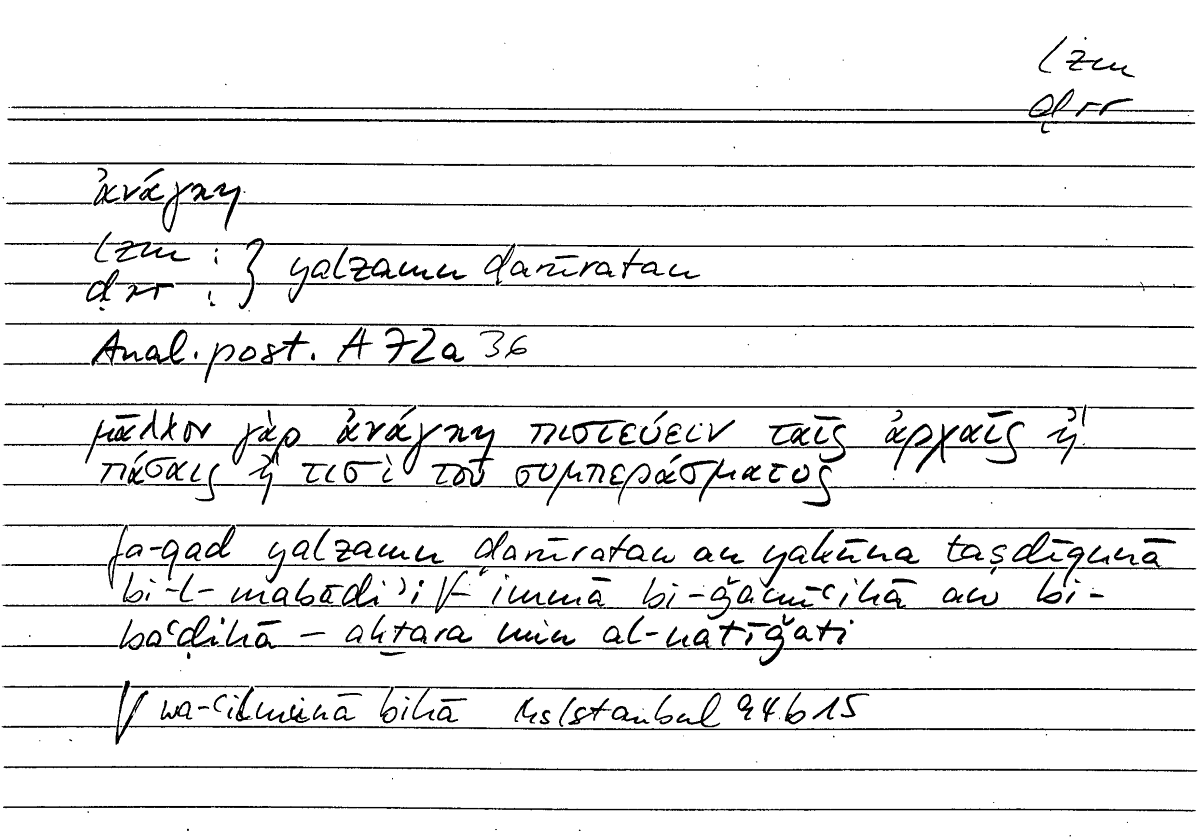 lzm
ḍrr
ἀνάγκη
lzm :
ḍrr : } yalzamu ḍarūratan
Anal. post. A 72a 36
μᾶλλον γὰρ ἀνάγκη πιστεύειν ταῖς ἀρχαῖς ἢ
πάσαις ἢ τισὶ τοῦ συμπεράσματος
fa-qad yalzamu ḍarūratan an yakūna taṣdīqunā
bi-l-mabādiʾi √– immā bi-ǧamīʿihā aw bi-
baʿḍihā – akṯara min al-natīǧati
√ wa-ʿilmunā bihā Hs Istanbul 94b15